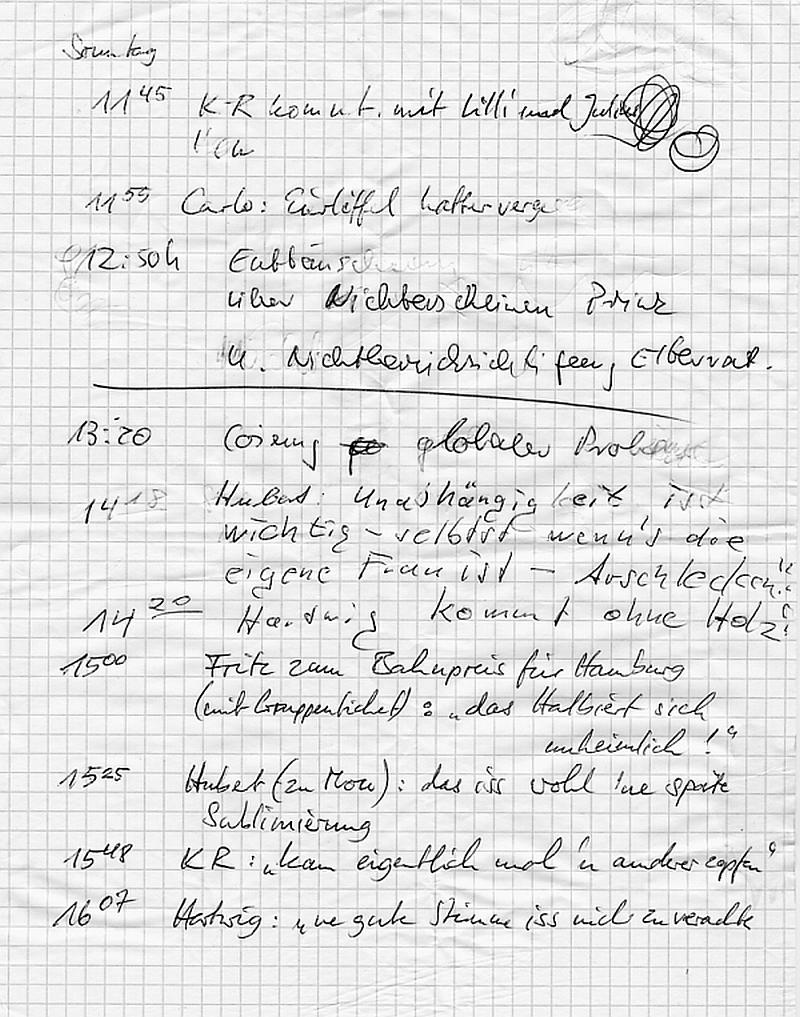 Sonntag
11 45 K-R kommt. mit Lilli und Julius
11 55 Carlo: Eierlöffel hatter verge
12:50h Enttäuschung
über Nichterscheinen Prinz
u. Nichtberücksichtigung Elbervat.
13:20 Lösung globaler Probleme
14 18 Hubert: Unabhängigkeit ist
wichtig - selbst wenn's die
eigene Frau ist - Arschlecken!"
14 20 Hartwig kommt ohne Holz!
15 00 Fritz zum Bahnpreis für Hamburg
(mit Gruppenticket): „das Halbiert sich
unheimlich!"
15 25 Hubert (zu Mow): das iss wohl 'ne späte
Sublimierung
15 48 KR: „kann eigentlich mal 'n anderer zapfen"
16 07 Hartwig: „ne gute Stimme iss nich zu verachte